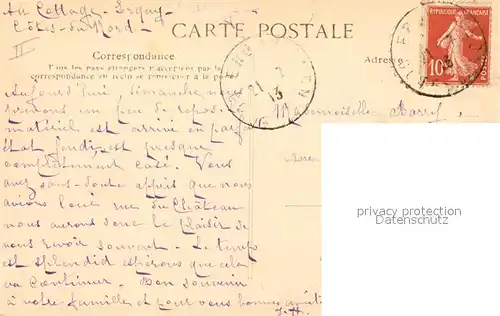 Au Cottage - Erquy -
Côtes-du-Nord -
II
CARTE POSTALE
Correspondance
Tous les pays étrangers n'acceptent pas la
correspondance au recto se renseigner à la poste
Adres
REPUBLIQUE FRANÇAISE
10
21
13
Mademoiselle
Aujourd'hui, dimanche, nous
un peu de repos.
matériel est arrivé en parfait
état jeudi, est presque
complètement casé. Vous
avez sans-doute appris que nous
avions loué rue du Château
nous aurons donc le plaisir de
vous revoir souvent. Le temps
est splendid espérons que cela
va continuer. Bon souvenir
à votre famille et pour vous bonnes amitiés
J.H.
privacy protection
Postales